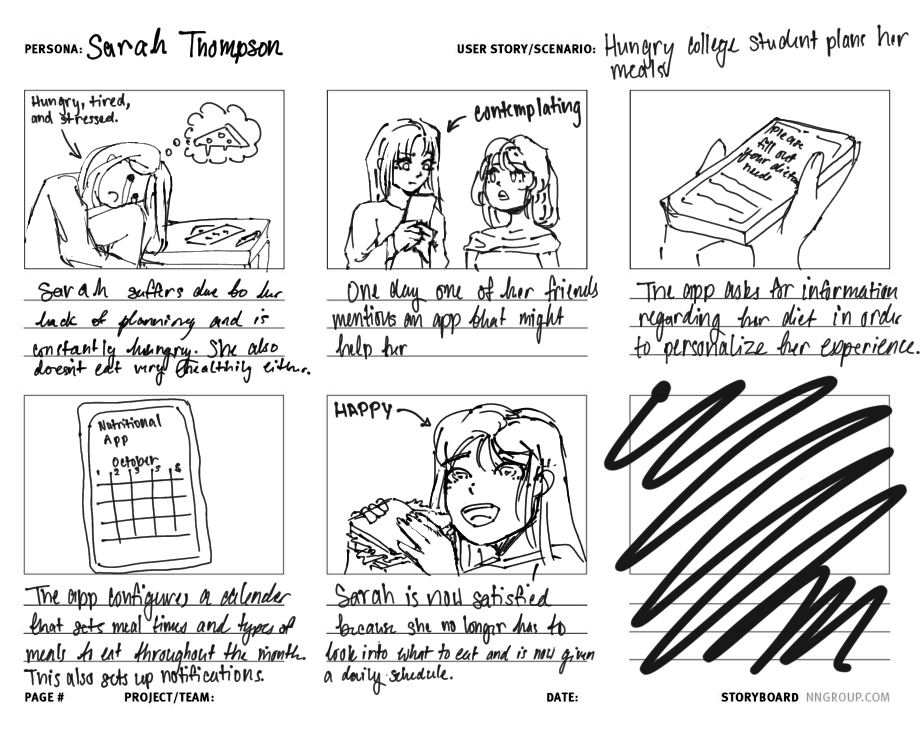 PERSONA: Sarah Thompson
USER STORY/SCENARIO: Hungry college student plans her
meals
Hungry, tired,
and stressed.
Sarah suffers due to her
lack of planning and is
constantly hungry. She also
doesn't eat very healthily either.
contemplating
One day one of her friends
mentions an app that might
help her
please
fill out
your diet
needs
The app asks for information
regarding her diet in order
to personalize her experience.
Nutritional
App
October
1 2 3 5 6
The app configures a calender
that sets meal times and types of
meals to eat throughout the month.
This also sets up notifications.
HAPPY
Sarah is now satisfied
because she no longer has to
look into what to eat and is now given
a daily schedule.
PAGE # PROJECT/TEAM: DATE: STORYBOARD NNGROUP.COM